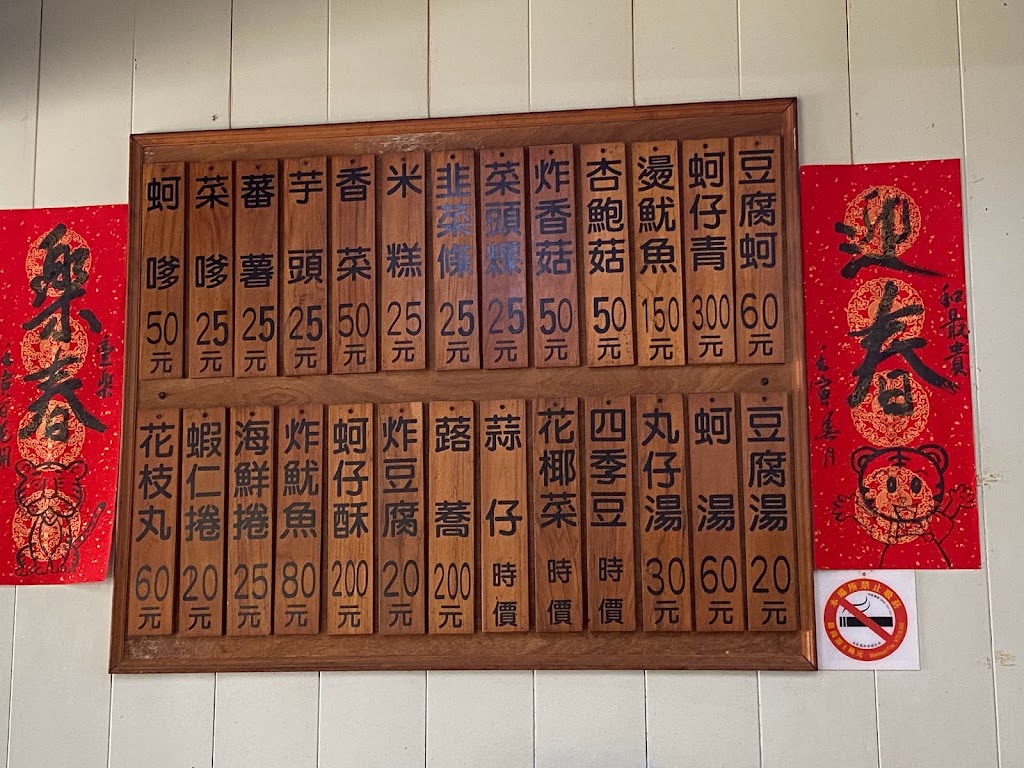 豆腐蚵 60元
蚵仔青 300元
燙魷魚 150元
杏鮑菇 50元
炸香菇 50元
菜頭粿 25元
韭菜條 25元
米糕 25元
香菜 50元
芋頭 25元
蕃薯 25元
菜嗲 25元
蚵嗲 50元
豆腐湯 20元
蚵湯 60元
丸仔湯 30元
四季豆 時價
花椰菜 時價
蒜仔 時價
蕗蕎 200元
炸豆腐 20元
蚵仔酥 200元
炸魷魚 80元
海鮮捲 25元
蝦仁捲 20元
花枝丸 60元
迎春
和最貴
壬寅春月
樂春
本場所禁止吸菸